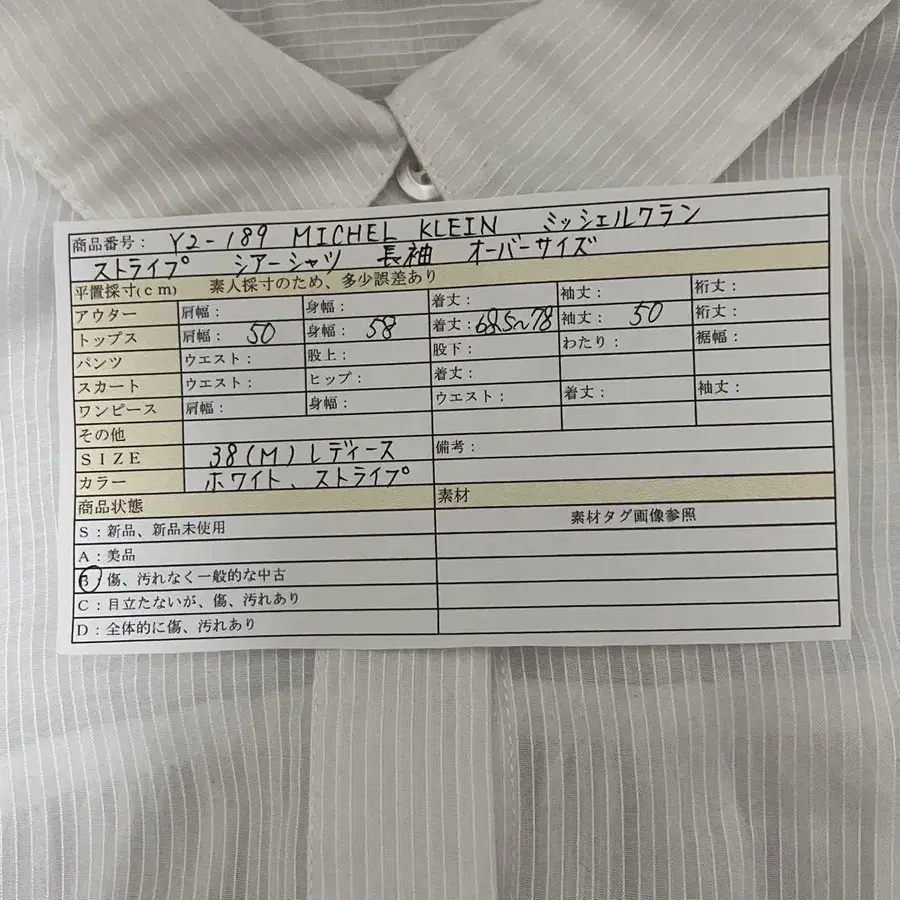 商品番号： Y2-189 MICHEL KLEIN ミッシェルクラン
ストライプ シアーシャツ 長袖 オーバーサイズ
平置採寸(ｃｍ) 素人採寸のため、多少誤差あり
アウター 肩幅： 身幅： 着丈： 袖丈： 裄丈：
トップス 肩幅： 50 身幅： 58 着丈：68.5~78 袖丈： 50 裄丈：
パンツ ウエスト： 股上： 股下： わたり： 裾幅：
スカート ウエスト： ヒップ： 着丈：
ワンピース 肩幅： 身幅： ウエスト： 着丈： 袖丈：
その他
ＳＩＺＥ 38(M) レディース 備考：
カラー ホワイト、ストライプ
商品状態 素材
Ｓ：新品、新品未使用 素材タグ画像参照
Ａ：美品
B：傷、汚れなく一般的な中古
Ｃ：目立たないが、傷、汚れあり
Ｄ：全体的に傷、汚れあり